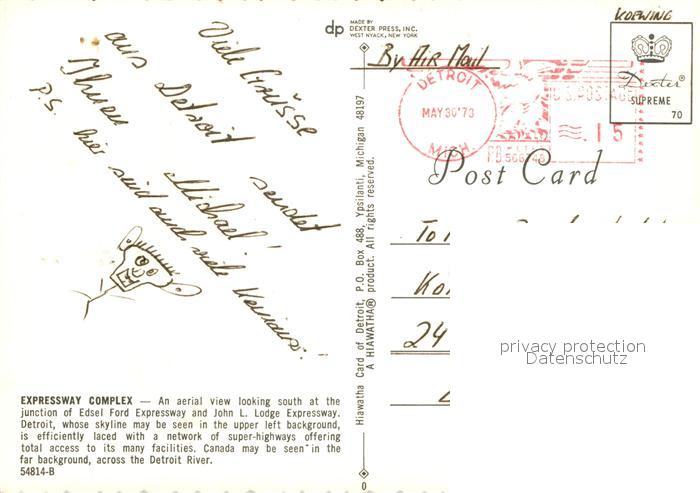 Viele Grüsse
aus Detroit sendet
Ihnen Michael!
P.S. hier sind auch viele
EXPRESSWAY COMPLEX — An aerial view looking south at the
junction of Edsel Ford Expressway and John L. Lodge Expressway.
Detroit, whose skyline may be seen in the upper left background,
is efficiently laced with a network of super-highways offering
total access to its many facilities. Canada may be seen in the
far background, across the Detroit River.
54814-B
dp
MADE BY
DEXTER PRESS, INC.
WEST NYACK, NEW YORK
Hiawatha Card of Detroit, P.O. Box 488, Ypsilanti, Michigan 48197
A HIAWATHA® product. All rights reserved.
0
By Air Mail
DETROIT
MAY 30'73
MICH.
U.S. POSTAGE
.15
KOEWING
Dexter®
SUPREME
70
Post Card
To
Ko
24
privacy protection
Datenschutz